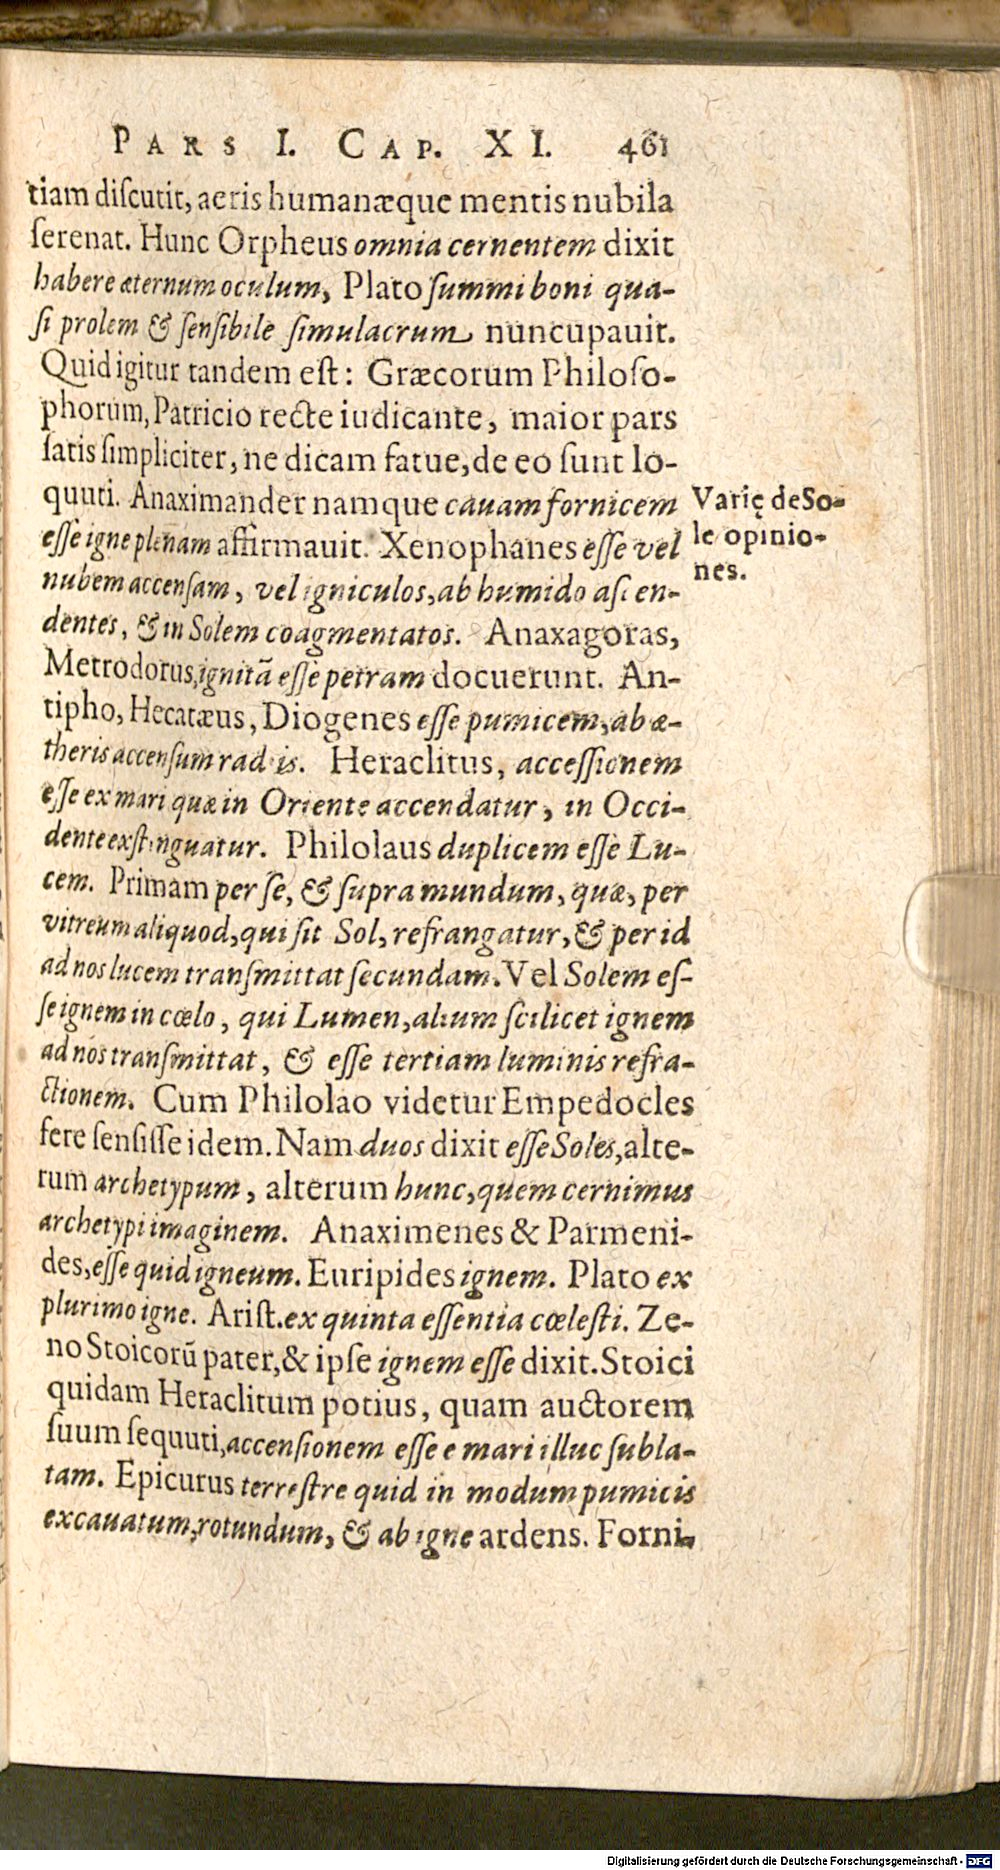 PARS I. CAP. XI. 461
tiam diſcutit, aeris humanæque mentis nubila
ſerenat. Hunc Orpheus omnia cernentem dixit
habere æternum oculum, Plato ſummi boni qua-
ſi prolem & ſenſibile ſimulacrum nuncupauit.
Quid igitur tandem eſt: Græcorum Philoſo-
phorum, Patricio recte iudicante, maior pars
ſatis ſimpliciter, ne dicam fatue, de eo ſunt lo-
quuti. Anaximander namque cauam fornicem
eſſe igne plenam affirmauit. Xenophanes eſſe vel
nubem accenſam, vel igniculos, ab humido aſcen-
dentes, & in Solem coagmentatos. Anaxagoras,
Metrodorus, ignitã eſſe petram docuerunt. An-
tipho, Hecatæus, Diogenes eſſe pumicem, ab æ-
theris accenſum radiis. Heraclitus, acceſſionem
eſſe ex mari quæ in Oriente accendatur, in Occi-
dente exſtinguatur. Philolaus duplicem eſſe Lu-
cem. Primam per ſe, & ſupra mundum, quæ, per
vitreum aliquod, qui ſit Sol, refrangatur, & per id
ad nos lucem tranſmittat ſecundam. Vel Solem eſ-
ſe ignem in cœlo, qui Lumen, alium ſcilicet ignem
ad nos tranſmittat, & eſſe tertiam luminis refra-
ctionem. Cum Philolao videtur Empedocles
fere ſenſiſſe idem. Nam duos dixit eſſe Soles, alte-
rum archetypum, alterum hunc, quem cernimus
archetypi imaginem. Anaximenes & Parmeni-
des, eſſe quid igneum. Euripides ignem. Plato ex
plurimo igne. Ariſt. ex quinta eſſentia cœleſti. Ze-
no Stoicorũ pater, & ipſe ignem eſſe dixit. Stoici
quidam Heraclitum potius, quam auctorem
ſuum ſequuti, accenſionem eſſe e mari illuc ſubla-
tam. Epicurus terreſtre quid in modum pumicis
excauatum, rotundum, & ab igne ardens. Forni-
Varię de So-
le opinio-
nes.
Digitalisierung gefördert durch die Deutsche Forschungsgemeinschaft - DFG